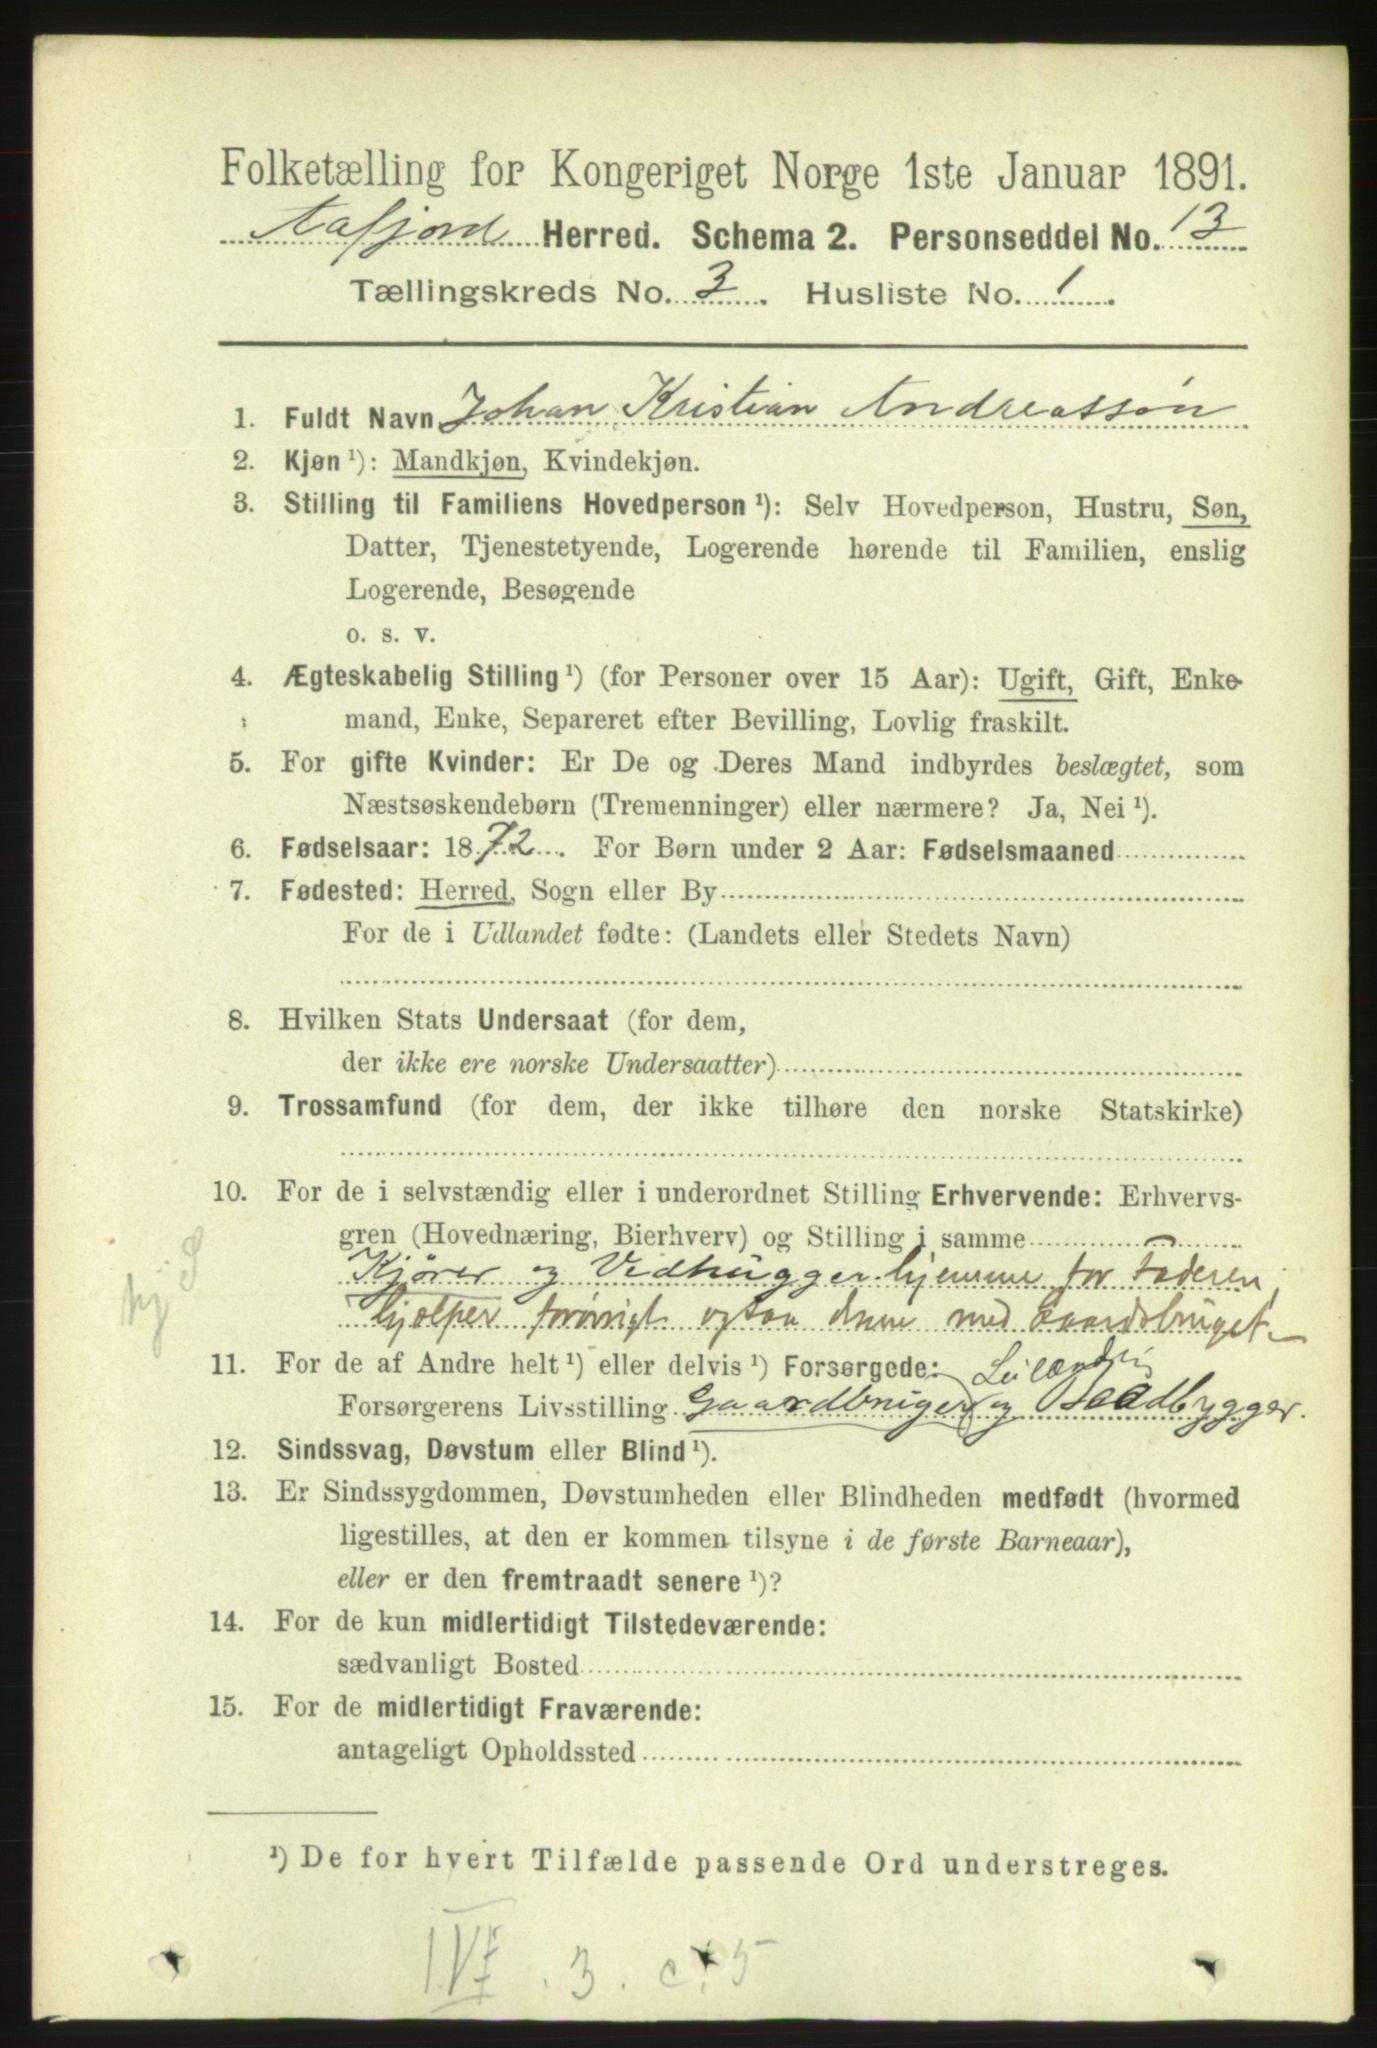 Folketælling for Kongeriget Norge 1ste Januar 1891.
Aafjord Herred. Schema 2. Personseddel No. 13
Tællingskreds No. 3. Husliste No. 1.
1. Fuldt Navn Johan Kristian Andreassøn
2. Kjøn ¹): Mandkjøn, Kvindekjøn.
3. Stilling til Familiens Hovedperson ¹): Selv Hovedperson, Hustru, Søn,
Datter, Tjenestetyende, Logerende hørende til Familien, enslig
Logerende, Besøgende
o. s. v.
4. Ægteskabelig Stilling ¹) (for Personer over 15 Aar): Ugift, Gift, Enke-
mand, Enke, Separeret efter Bevilling, Lovlig fraskilt.
5. For gifte Kvinder: Er De og Deres Mand indbyrdes beslægtet, som
Næstsøskendebørn (Tremenninger) eller nærmere? Ja, Nei ¹).
6. Fødselsaar: 1872. For Børn under 2 Aar: Fødselsmaaned
7. Fødested: Herred, Sogn eller By
For de i Udlandet fødte: (Landets eller Stedets Navn)
8. Hvilken Stats Undersaat (for dem,
der ikke ere norske Undersaatter)
9. Trossamfund (for dem, der ikke tilhøre den norske Statskirke)
10. For de i selvstændig eller i underordnet Stilling Erhvervende: Erhvervs-
gren (Hovednæring, Bierhverv) og Stilling i samme
Kjører og Vedhugger hjemme for Faderen,
hjælper forøvrigt ogsaa denne med Gaardsbruget.
hj. S
11. For de af Andre helt ¹) eller delvis ¹) Forsørgede:
Leilænding
Forsørgerens Livsstilling Gaardbruger og Baadbygger.
12. Sindssvag, Døvstum eller Blind ¹).
13. Er Sindssygdommen, Døvstumheden eller Blindheden medfødt (hvormed
ligestilles, at den er kommen tilsyne i de første Barneaar),
eller er den fremtraadt senere ¹)?
14. For de kun midlertidigt Tilstedeværende:
sædvanligt Bosted
15. For de midlertidigt Fraværende:
antageligt Opholdssted
¹) De for hvert Tilfælde passende Ord understreges.
3. c. 5